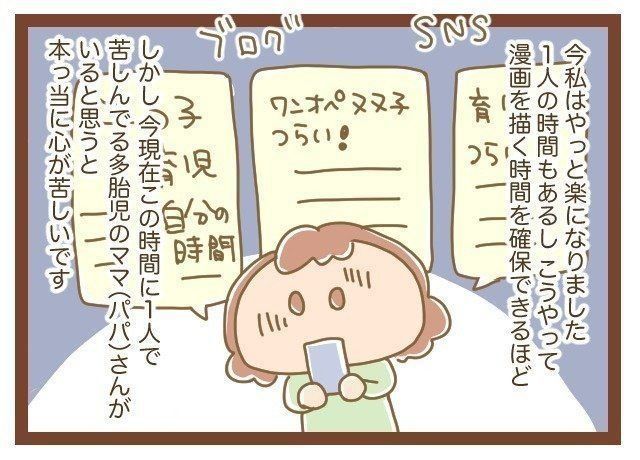 今私はやっと楽になりました
1人の時間もあるし こうやって
漫画を描く時間を確保できるほど
SNS
ブログ
育
つら
ワンオペ双子
つらい!
の子
育児
自分の
時間
しかし 今現在この時間に1人で
苦しんでる多胎児のママ(パパ)さんが
いると思うと
本っ当に心が苦しいです